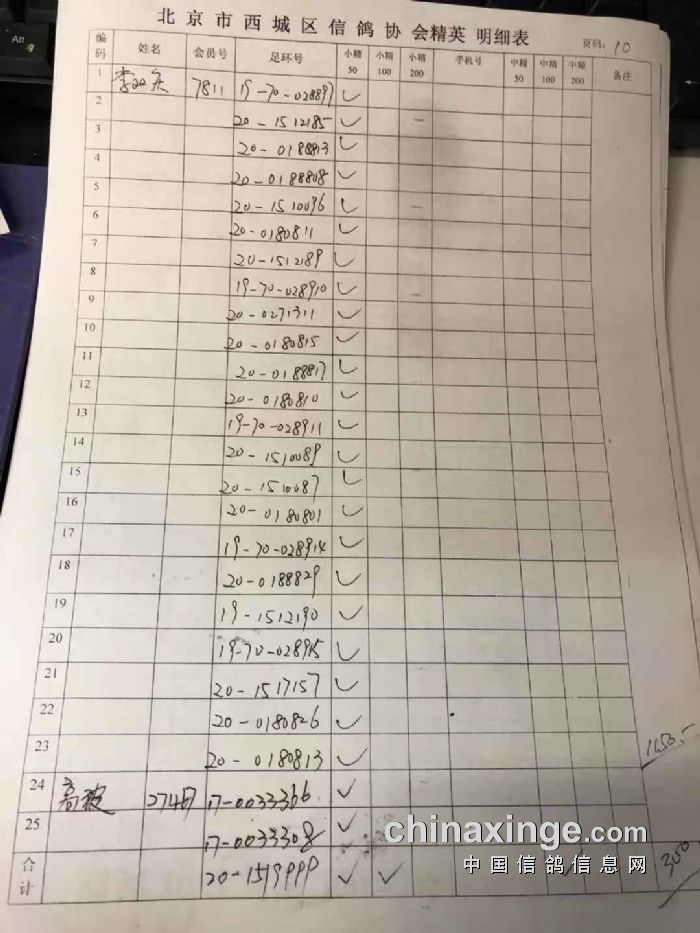 Alt
北京市西城区信鸽协会精英 明细表
页码: 10
编码 姓名 会员号 足环号 小精50 小精100 小精200 手机号 中精50 中精100 中精200 备注
1 7811 19-70-028897 ✓
2 20-1512185 ✓
3 20-0188813 ✓
4 20-0188808 ✓
5 20-1510096 ✓
6 20-0180811 ✓
7 20-1512189 ✓
8 19-70-028910 ✓
9 20-0271311 ✓
10 20-0180815 ✓
11 20-0188817 ✓
12 20-0180810 ✓
13 19-70-028911 ✓
14 20-1510089 ✓
15 20-1510087 ✓
16 20-0180801 ✓
17 19-70-028914 ✓
18 20-0188829 ✓
19 19-1512190 ✓
20 19-70-028915 ✓
21 20-1517157 ✓
22 20-0180826 ✓
23 20-0180813 ✓ 1150.-
24 高波 17-0033366 ✓
25 17-0033308 ✓
合计 20-1519999 ✓ ✓ 300
chinaxinge.com
中国信鸽信息网